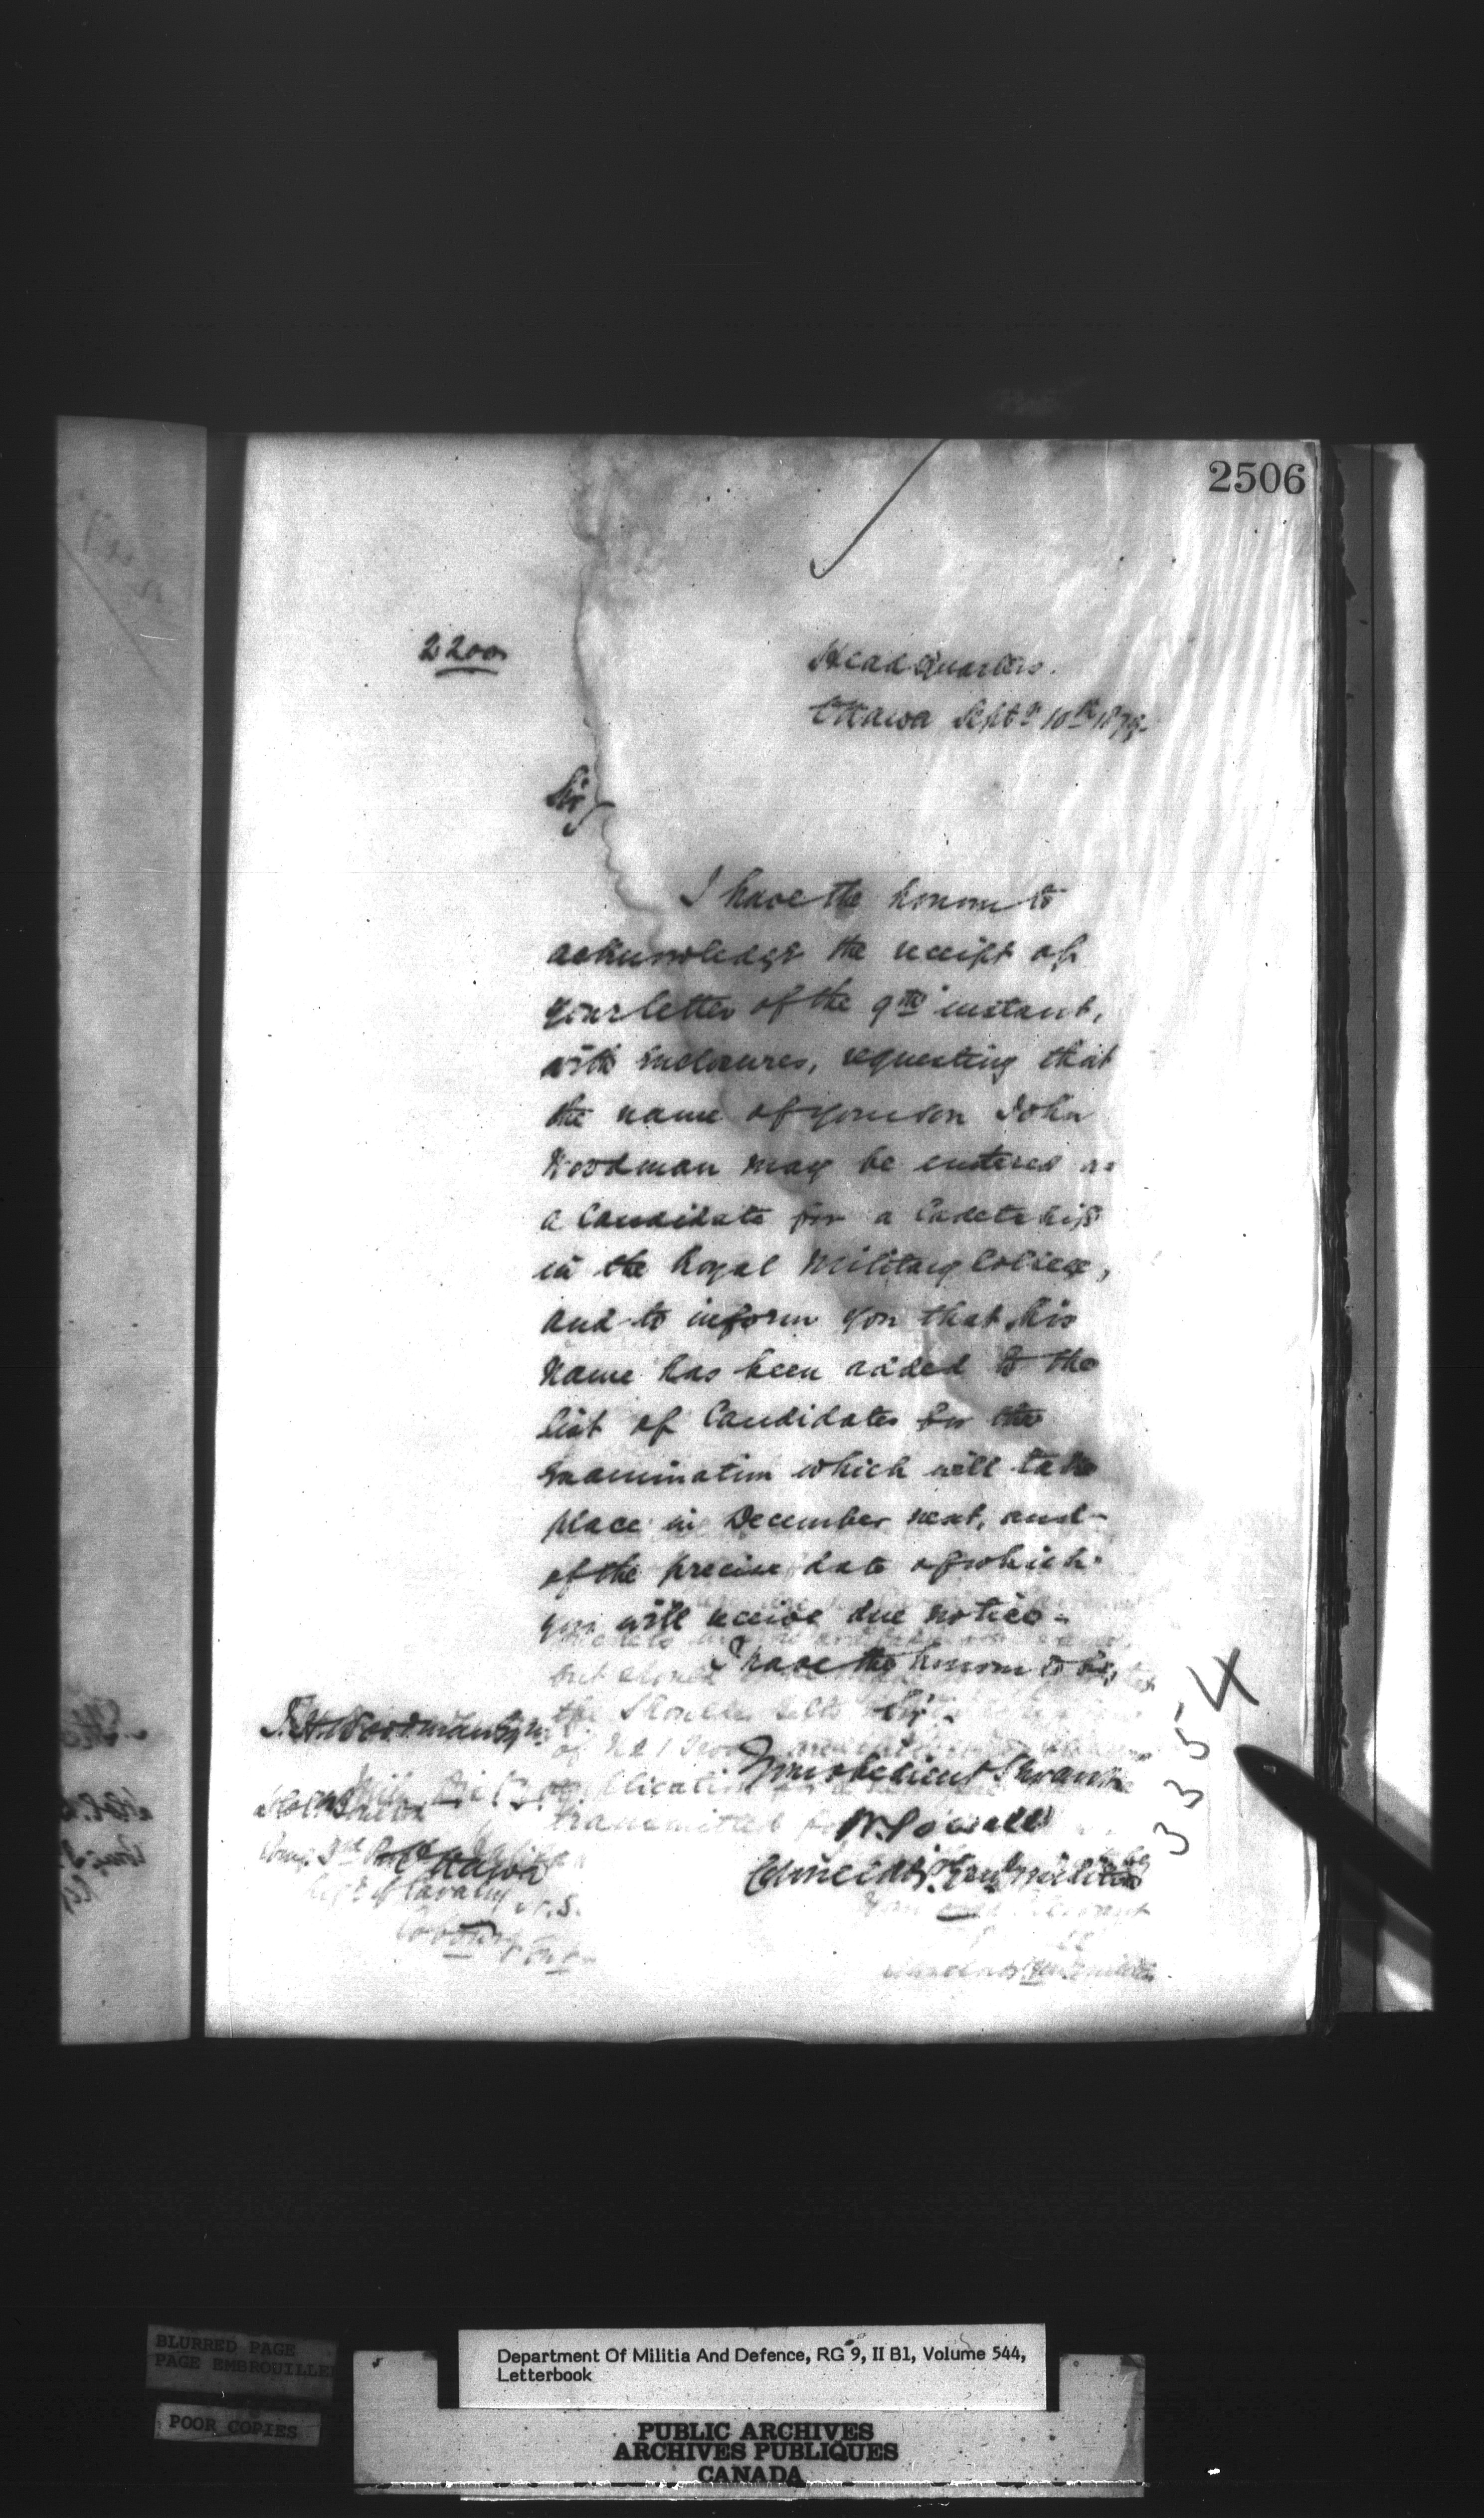 2506
2200
Head Quarters.
Ottawa Septr 10th 1879.
Sir,
I have the honour to
acknowledge the receipt of
your letter of the 9th instant,
with enclosures, requesting that
the name of your son John
Woodman may be entered as
a Candidate for a Cadetship
in the Royal Military College,
and to inform you that his
name has been added to the
list of Candidates for the
Examination which will take
place in December next, and
of the precise date of which
you will receive due notice.
I have the honour to be,
Sir,
Your obedient Servant
W. Powell
Colonel Adjt Genl Militia
Woodman Esqr
Ottawa
the Shoulder belts
of No 1 Troop
transmitted
Regt of Cavalry
Cobourg
Ont
3354
BLURRED PAGE
PAGE EMBROUILLEE
POOR COPIES
Department Of Militia And Defence, RG 9, II B1, Volume 544,
Letterbook
PUBLIC ARCHIVES
ARCHIVES PUBLIQUES
CANADA